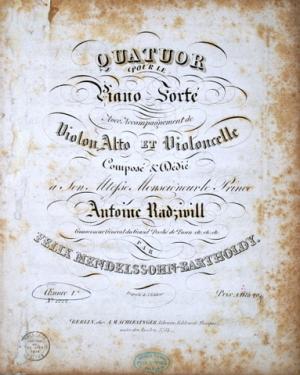 QUATUOR
POUR LE
Piano Forte
Avec Accompagnement de
Violon, Alto ET Violoncelle
Composé & Dédié
à Son Altesse Monseigneur le Prince
Antoine Radziwill
Gouverneur Général du Grand Duché de Posen etc. etc. etc.
PAR
FELIX MENDELSSOHN-BARTHOLDY.
Œuvre 1.
Prix
BERLIN, chez A. M. SCHLESINGER, Libraire, Editeur de Musique,